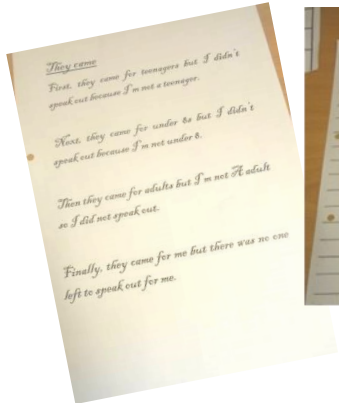 They came
First, they came for teenagers but I didn't
speak out because I'm not a teenager.
Next, they came for under 8s but I didn't
speak out because I'm not under 8.
Then they came for adults but I'm not A adult
so I did not speak out.
Finally, they came for me but there was no one
left to speak out for me.